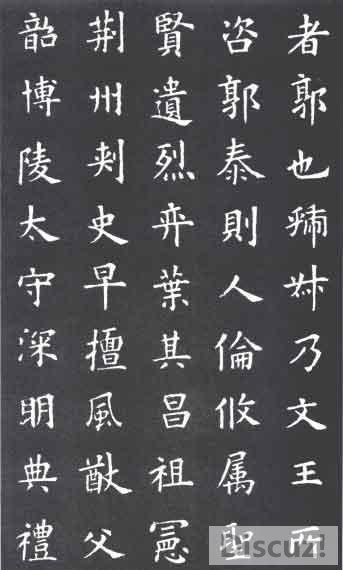 者郭也虢叔乃文王所
咨郭泰則人倫攸属聖
賢遺烈弈葉其昌祖憲
荆州刺史早擅風猷父
韶博陵太守深明典禮
Discuz!